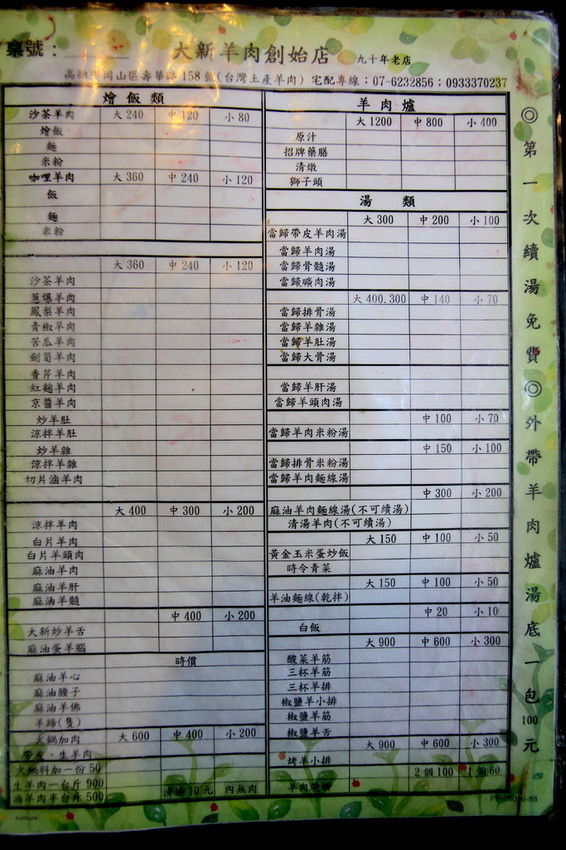 桌號：
大新羊肉創始店 九十年老店
高雄市岡山區壽華路158號(台灣土產羊肉) 宅配專線：07-6232856；0933370237
燴飯類
沙茶羊肉 大240 中120 小80
燴飯
麵
米粉
咖哩羊肉 大360 中240 小120
飯
麵
米粉
大360 中240 小120
沙茶羊肉
蔥爆羊肉
鳳梨羊肉
青椒羊肉
苦瓜羊肉
劍筍羊肉
香芹羊肉
紅麴羊肉
京醬羊肉
炒羊肚
涼拌羊肚
炒羊雜
涼拌羊雜
切片滷羊肉
大400 中300 小200
涼拌羊肉
白片羊肉
白片羊頭肉
麻油羊肉
麻油羊肝
麻油羊髓
中400 小200
大新炒羊舌
麻油蛋羊腦
時價
麻油羊心
麻油腰子
麻油羊佛
羊蹄(隻)
火鍋加肉 大600 中400 小200
帶皮、生羊肉
火鍋料加一份50
生羊肉一台斤900
滷羊肉半台斤500
清湯10元 內無肉
羊肉爐
大1200 中800 小400
原汁
招牌藥膳
清燉
獅子頭
湯類
大300 中200 小100
當歸帶皮羊肉湯
當歸羊肉湯
當歸骨髓湯
當歸曠肉湯
大400.300 中140 小70
當歸排骨湯
當歸羊雜湯
當歸羊肚湯
當歸大骨湯
當歸羊肝湯
當歸羊頭肉湯
中100 小70
當歸羊肉米粉湯
中150 小100
當歸排骨米粉湯
當歸羊肉麵線湯
中300 小200
麻油羊肉麵線湯(不可續湯)
清湯羊肉(不可續湯)
大150 中100 小50
黃金玉米蛋炒飯
時令青菜
大150 中100 小50
羊油麵線(乾拌)
中20 小10
白飯
大900 中600 小300
酸菜羊筋
三杯羊筋
三杯羊排
椒鹽羊小排
椒鹽羊筋
椒鹽羊舌
大900 中600 小300
烤羊小排
2個100 1個60
◎第一次續湯免費◎外帶羊肉爐湯底一包100元